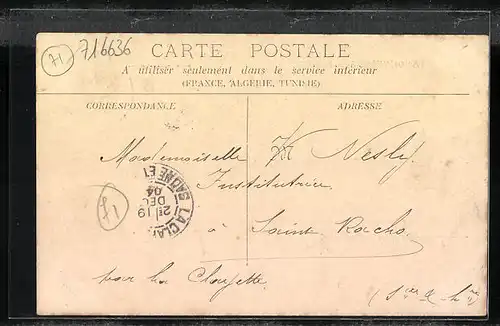 71
716636
CARTE POSTALE
A utiliser seulement dans le service intérieur
(FRANCE, ALGÉRIE, TUNISIE)
CORRESPONDANCE
ADRESSE
Mademoiselle Nesly
Institutrice
à Saint Racho
par la Clayette
(Sne & Lre)
71
LA CLAY
SAONE ET
21 19
DEC
04